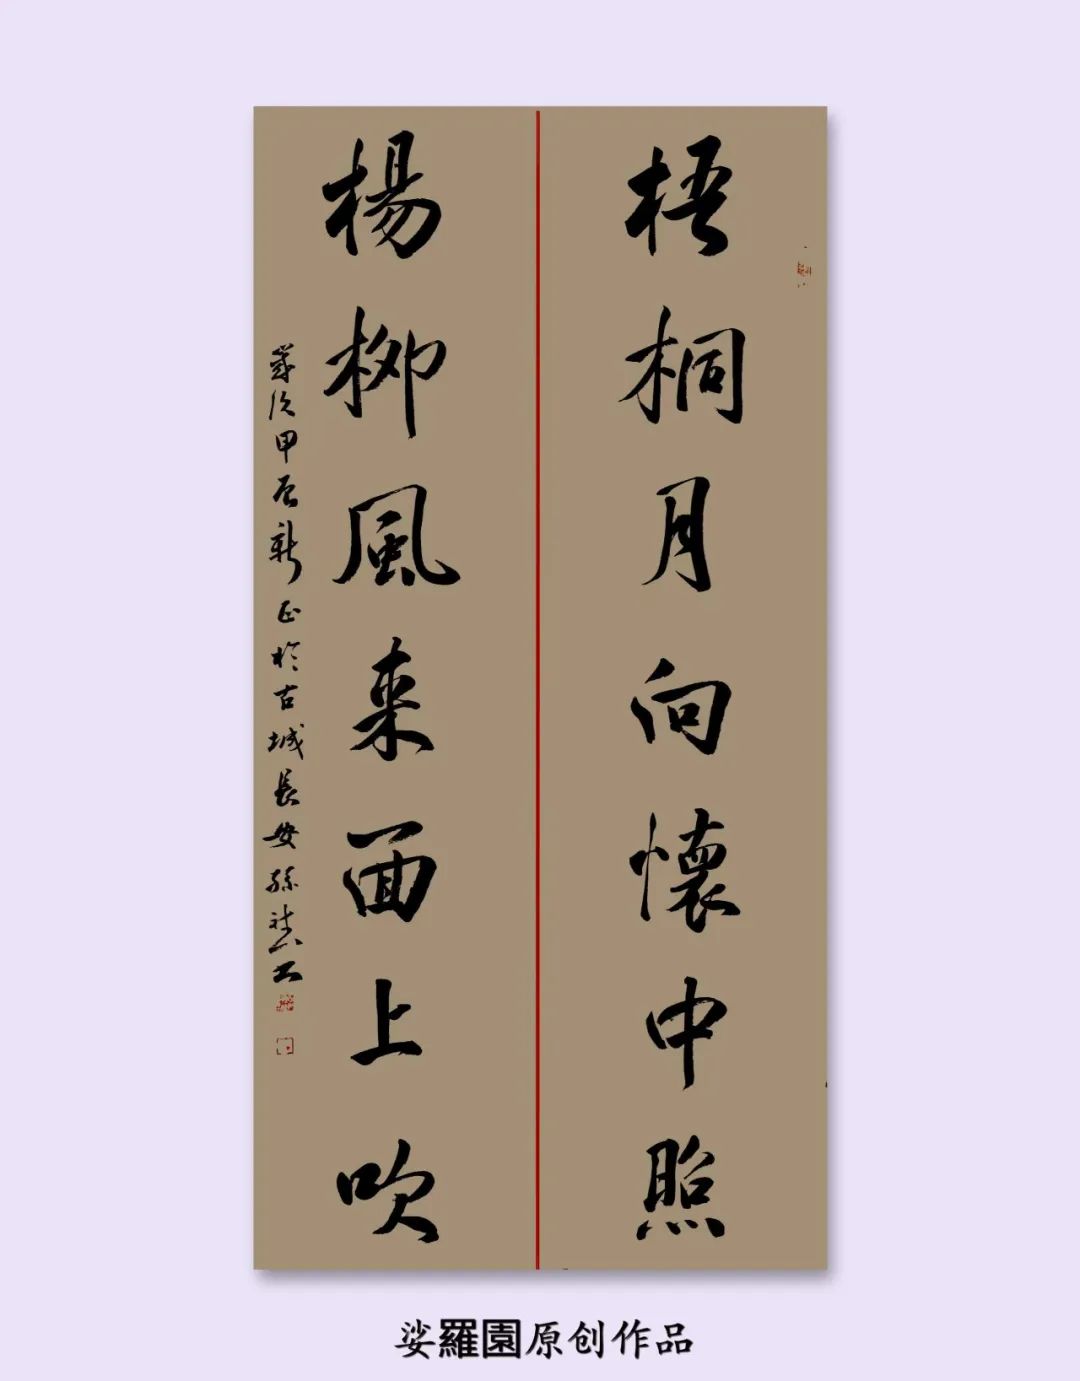 梧桐月向懷中照
楊柳風来面上吹
歲次甲辰新正於古城長安孫
娑羅園原创作品